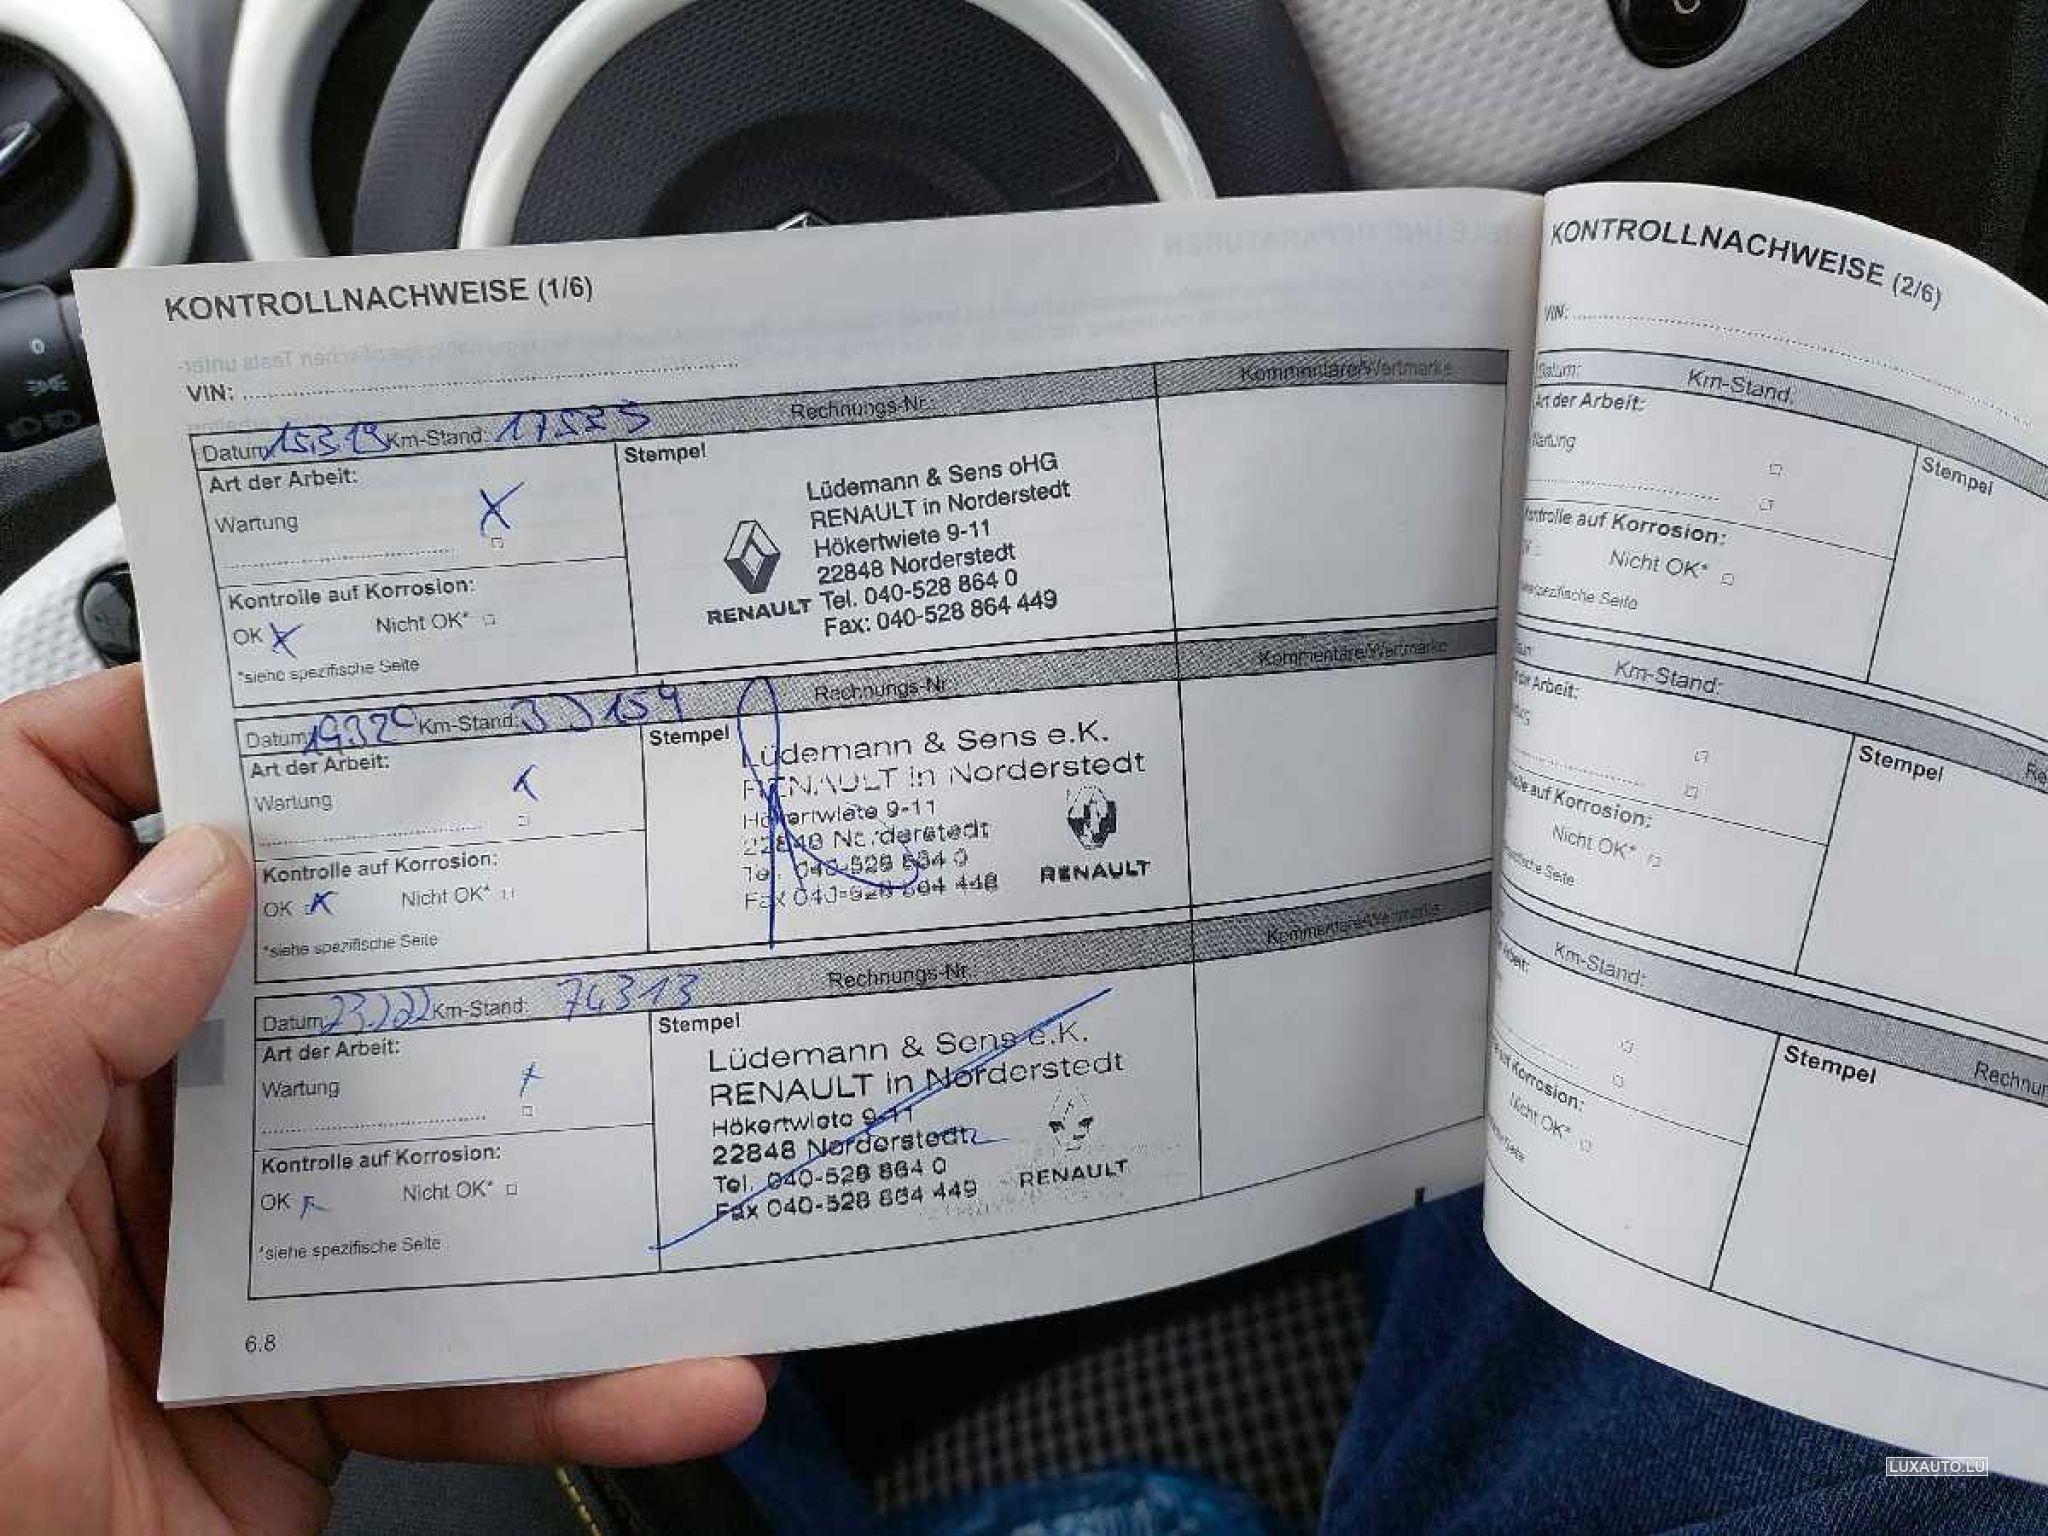 KONTROLLNACHWEISE (1/6)
VIN:
Datum 15.3.19 Km-Stand: Rechnungs-Nr. Kommentare/Wertmarke
Art der Arbeit:
Wartung X
Stempel
Lüdemann & Sens oHG
RENAULT in Norderstedt
Hökertwiete 9-11
22848 Norderstedt
Tel. 040-528 864 0
Fax: 040-528 864 449
RENAULT
Kontrolle auf Korrosion:
OK X Nicht OK*
*siehe spezifische Seite
Datum Km-Stand: Rechnungs-Nr. Kommentare/Wertmarke
Art der Arbeit:
Wartung
Stempel
Lüdemann & Sens e.K.
RENAULT in Norderstedt
Hökertwiete 9-11
22848 Norderstedt
Tel. 040-528 864 0
Fax 040-528 864 449
RENAULT
Kontrolle auf Korrosion:
OK X Nicht OK*
*siehe spezifische Seite
Datum Km-Stand: 74313 Rechnungs-Nr. Kommentare/Wertmarke
Art der Arbeit:
Wartung
Stempel
Lüdemann & Sens e.K.
RENAULT in Norderstedt
Hökertwiete 9-11
22848 Norderstedt
Tel. 040-528 864 0
Fax 040-528 864 449
RENAULT
Kontrolle auf Korrosion:
OK Nicht OK*
*siehe spezifische Seite
6.8
KONTROLLNACHWEISE (2/6)
VIN:
Datum: Km-Stand:
Art der Arbeit:
Wartung
Stempel
Kontrolle auf Korrosion:
Nicht OK*
spezifische Seite
Km-Stand:
Arbeit:
Stempel
auf Korrosion:
Nicht OK*
Seite
Km-Stand:
Stempel
Korrosion:
Nicht OK*
LUXAUTO.LU